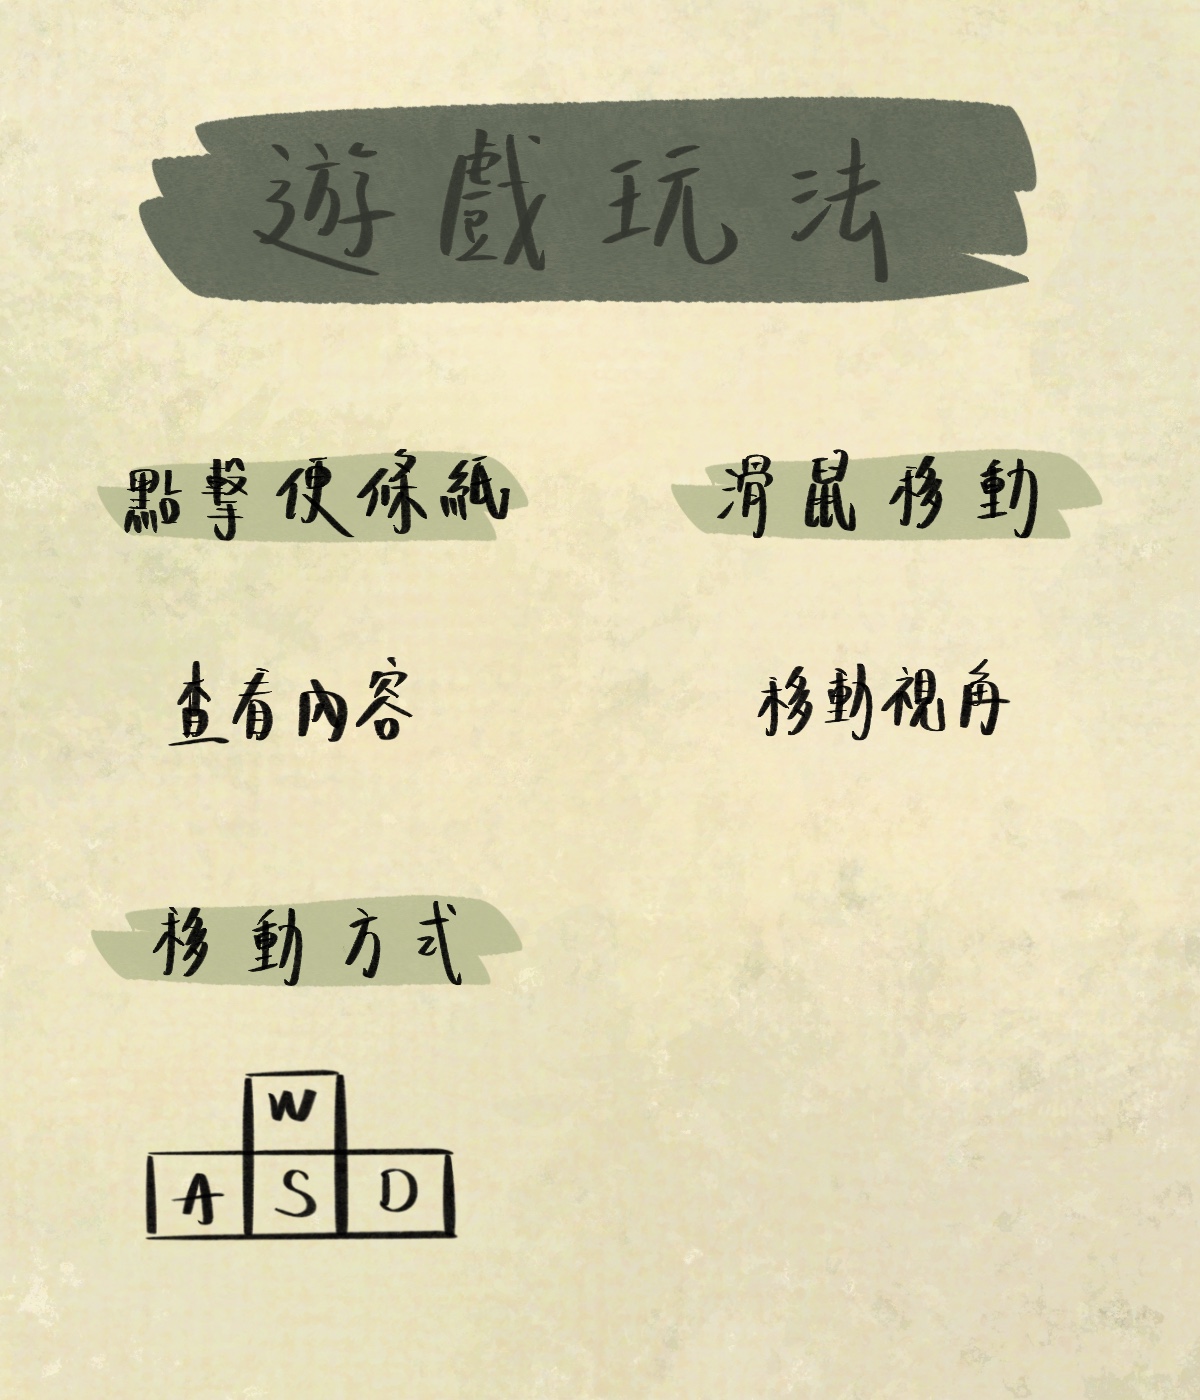 遊戲玩法
點擊便條紙
查看內容
滑鼠移動
移動視角
移動方式
W
A S D